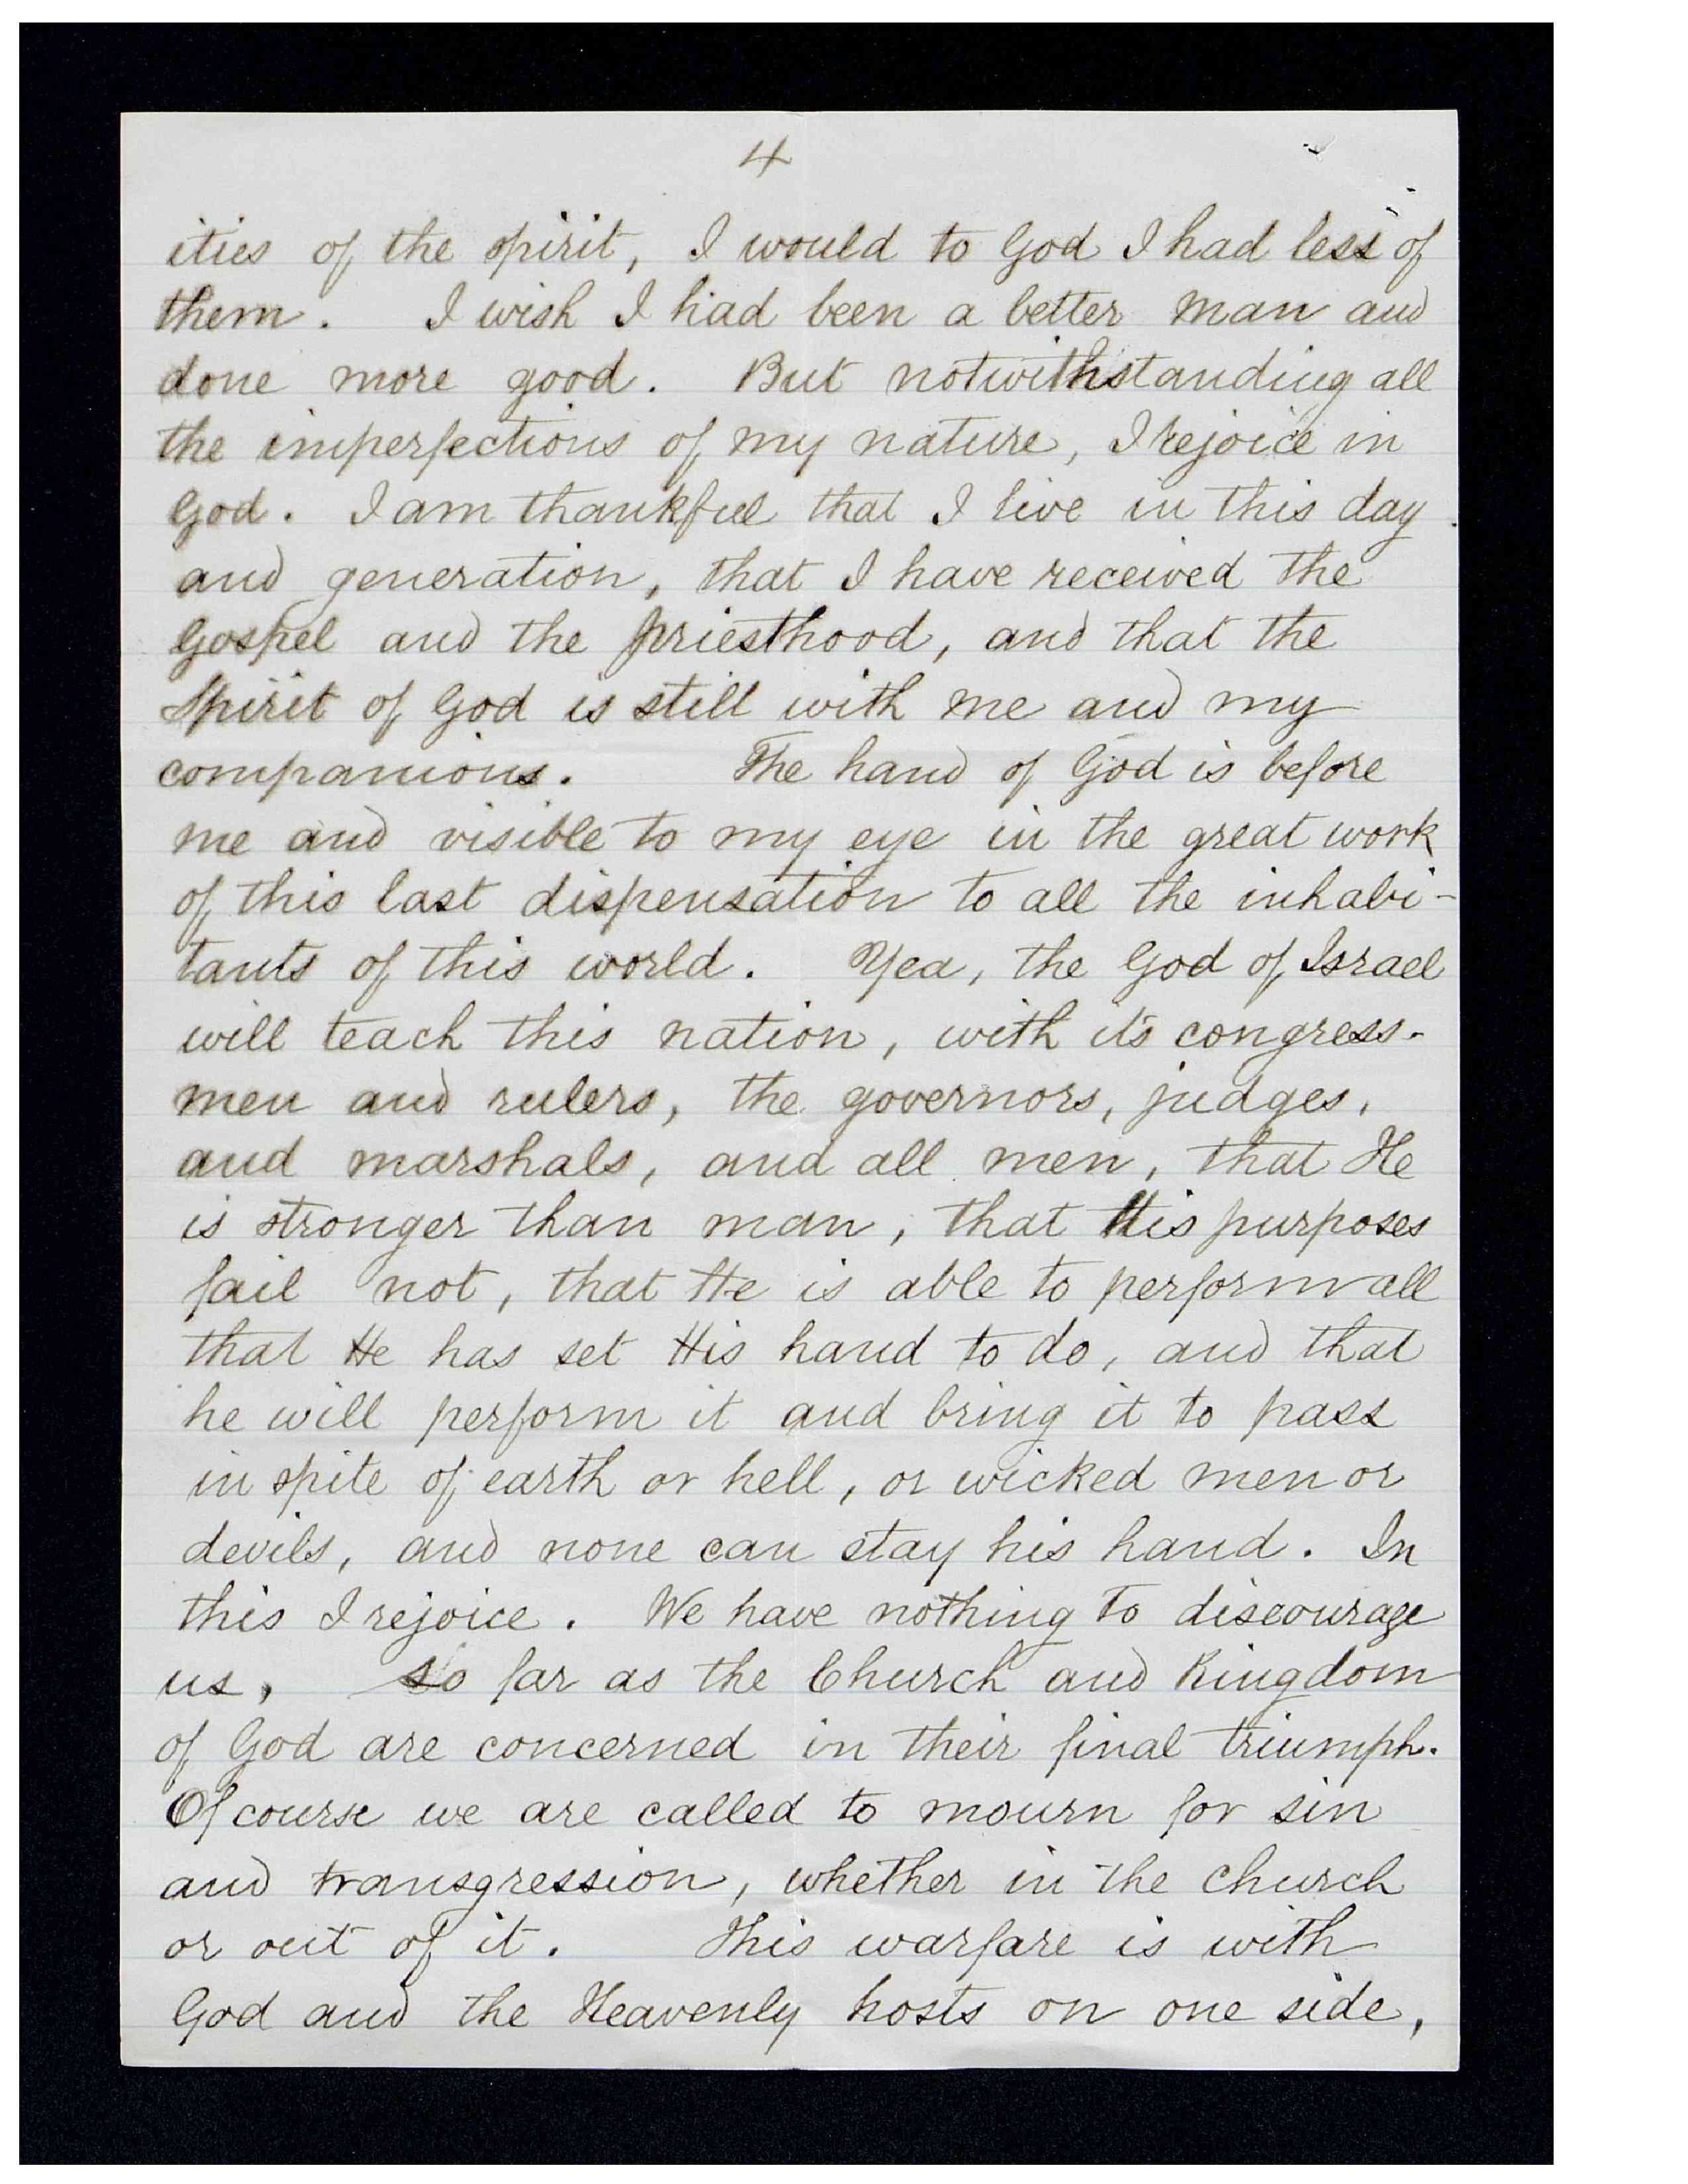 4
ities of the spirit, I would to God I had less of
them. I wish I had been a better man and
done more good. But notwithstanding all
the imperfections of my nature, I rejoice in
God. I am thankful that I live in this day
and generation, that I have received the
Gospel and the priesthood, and that the
Spirit of God is still with me and my
companions. The hand of God is before
me and visible to my eye in the great work
of this last dispensation to all the inhabi-
tants of this world. Yea, the God of Israel
will teach this nation, with its congress-
men and rulers, the governors, judges,
and marshals, and all men, that He
is stronger than man, that His purposes
fail not, that He is able to perform all
that He has set His hand to do, and that
he will perform it and bring it to pass
in spite of earth or hell, or wicked men or
devils, and none can stay his hand. In
this I rejoice. We have nothing to discourage
us, so far as the Church and Kingdom
of God are concerned in their final triumph.
Of course we are called to mourn for sin
and transgression, whether in the church
or out of it. This warfare is with
God and the Heavenly hosts on one side,